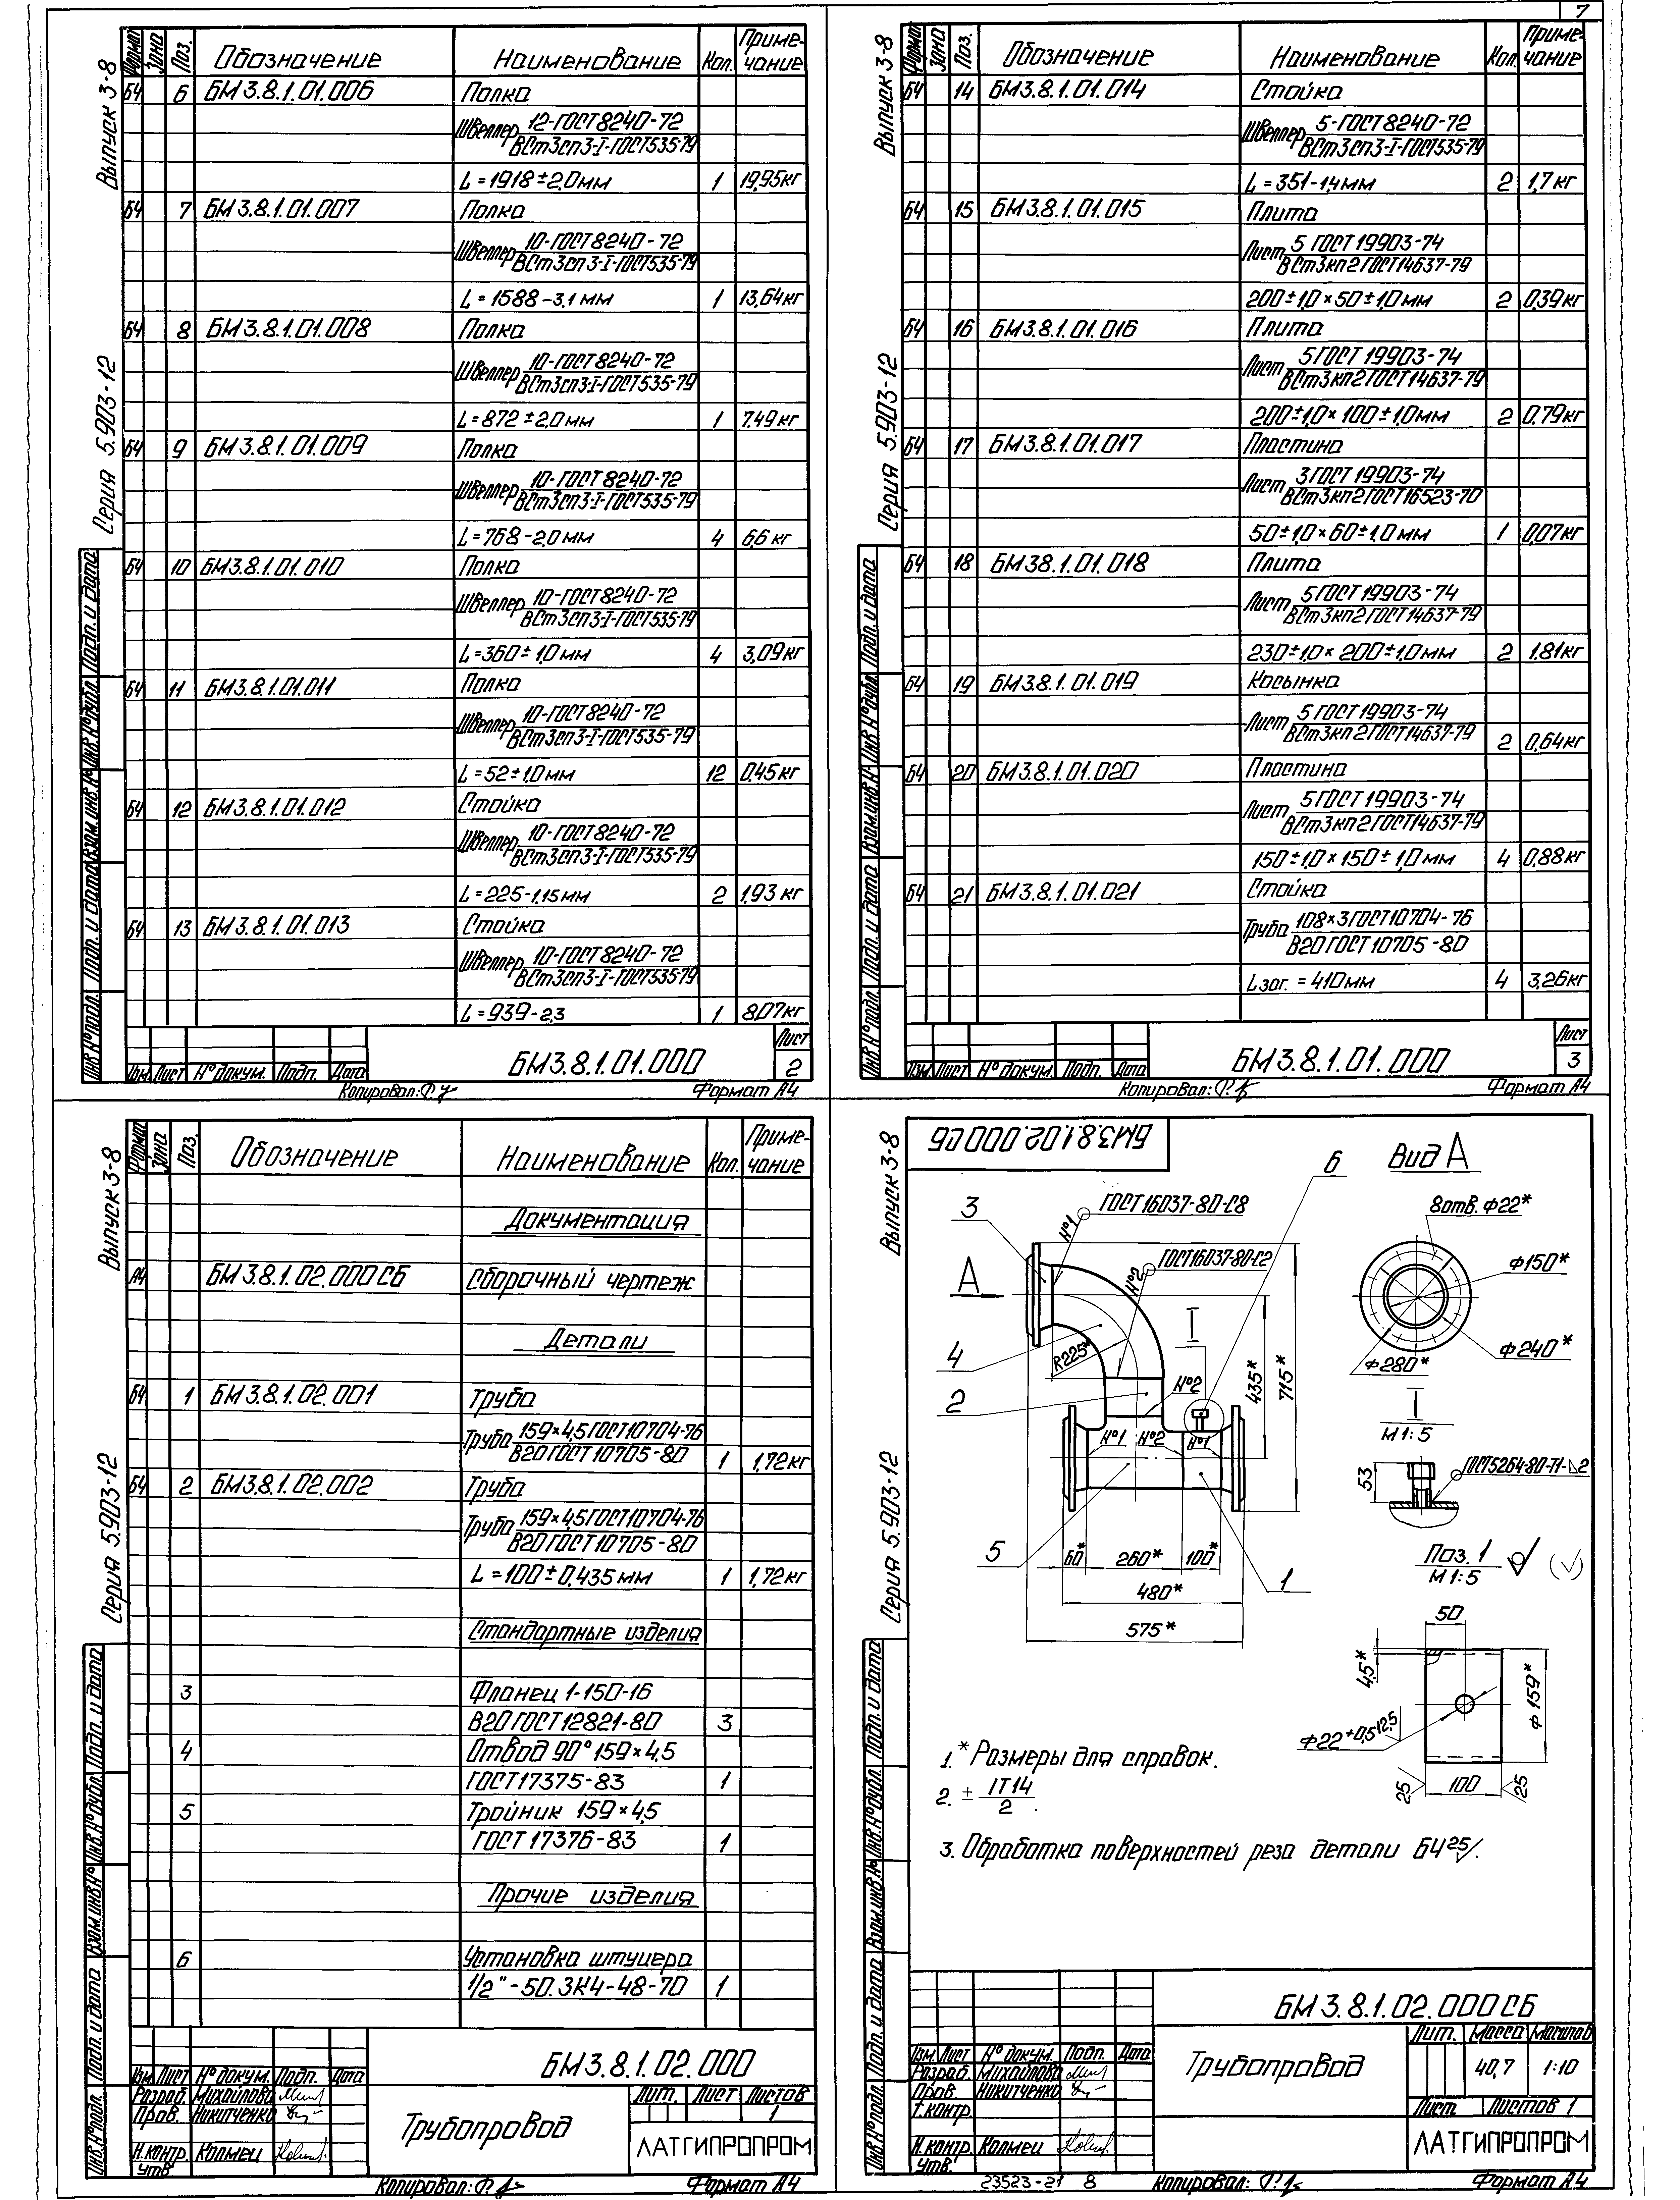 7
Выпуск 3-8
Серия 5.903-12
Формат Зона Поз. Обозначение Наименование Кол. Примечание
БЧ 6 БМ3.8.1.01.006 Полка
Швеллер 12-ГОСТ8240-72
ВСт3сп3-I-ГОСТ535-79
L=1918±2,0мм 1 19,95кг
БЧ 7 БМ3.8.1.01.007 Полка
Швеллер 10-ГОСТ8240-72
ВСт3сп3-I-ГОСТ535-79
L=1588-3,1мм 1 13,64кг
БЧ 8 БМ3.8.1.01.008 Полка
Швеллер 10-ГОСТ8240-72
ВСт3сп3-I-ГОСТ535-79
L=872±2,0мм 1 7,49кг
БЧ 9 БМ3.8.1.01.009 Полка
Швеллер 10-ГОСТ8240-72
ВСт3сп3-I-ГОСТ535-79
L=768-2,0мм 4 6,6 кг
БЧ 10 БМ3.8.1.01.010 Полка
Швеллер 10-ГОСТ8240-72
ВСт3сп3-I-ГОСТ535-79
L=360±1,0мм 4 3,09кг
БЧ 11 БМ3.8.1.01.011 Полка
Швеллер 10-ГОСТ8240-72
ВСт3сп3-I-ГОСТ535-79
L=52±1,0мм 12 0,45кг
БЧ 12 БМ3.8.1.01.012 Стойка
Швеллер 10-ГОСТ8240-72
ВСт3сп3-I-ГОСТ535-79
L=225-1,15мм 2 1,93 кг
БЧ 13 БМ3.8.1.01.013 Стойка
Швеллер 10-ГОСТ8240-72
ВСт3сп3-I-ГОСТ535-79
L=939-2,3 1 8,07кг
Инв.№подл. Подп. и дата Взам.инв.№ Инв.№дубл. Подп. и дата
Изм. Лист №докум. Подп. Дата
БМ3.8.1.01.000
Лист
2
Копировал: Формат А4
Выпуск 3-8
Серия 5.903-12
Формат Зона Поз. Обозначение Наименование Кол. Примечание
БЧ 14 БМ3.8.1.01.014 Стойка
Швеллер 5-ГОСТ8240-72
ВСт3сп3-I-ГОСТ535-79
L=351-1,4мм 2 1,7 кг
БЧ 15 БМ3.8.1.01.015 Плита
Лист 5 ГОСТ19903-74
ВСт3кп2ГОСТ14637-79
200±1,0×50±1,0мм 2 0,39кг
БЧ 16 БМ3.8.1.01.016 Плита
Лист 5ГОСТ 19903-74
ВСт3кп2ГОСТ14637-79
200±1,0×100±1,0мм 2 0,79кг
БЧ 17 БМ3.8.1.01.017 Пластина
Лист 3ГОСТ19903-74
ВСт3кп2ГОСТ16523-70
50±1,0×60±1,0мм 1 0,07кг
БЧ 18 БМ38.1.01.018 Плита
Лист 5ГОСТ19903-74
ВСт3кп2ГОСТ14637-79
230±1,0×200±1,0мм 2 1,81кг
БЧ 19 БМ3.8.1.01.019 Косынка
Лист 5ГОСТ19903-74
ВСт3кп2ГОСТ14637-79
2 0,64кг
БЧ 20 БМ3.8.1.01.020 Пластина
Лист 5ГОСТ19903-74
ВСт3кп2ГОСТ14637-79
150±1,0×150±1,0мм 4 0,88кг
БЧ 21 БМ3.8.1.01.021 Стойка
Труба 108×3ГОСТ10704-76
В20ГОСТ10705-80
Lзаг.=410мм 4 3,26кг
Инв.№подл. Подп. и дата Взам.инв.№ Инв.№дубл. Подп. и дата
Изм. Лист №докум. Подп. Дата
БМ3.8.1.01.000
Лист
3
Копировал: Формат А4
Выпуск 3-8
Серия 5.903-12
Формат Зона Поз. Обозначение Наименование Кол. Примечание
Документация
А4 БМ3.8.1.02.000СБ Сборочный чертеж
Детали
БЧ 1 БМ3.8.1.02.001 Труба
Труба 159×4,5ГОСТ10704-76
В20ГОСТ10705-80 1 1,72кг
БЧ 2 БМ3.8.1.02.002 Труба
Труба 159×4,5ГОСТ10704-76
В20ГОСТ10705-80
L=100±0,435мм 1 1,72кг
Стандартные изделия
3 Фланец 1-150-16
В20ГОСТ12821-80 3
4 Отвод 90° 159×4,5
ГОСТ17375-83 1
5 Тройник 159×4,5
ГОСТ 17376-83 1
Прочие изделия
6 Установка штуцера
1/2"-50.ЗК4-48-70 1
Инв.№подл. Подп. и дата Взам.инв.№ Инв.№дубл. Подп. и дата
БМ3.8.1.02.000
Изм. Лист №докум. Подп. Дата
Разраб. Михайлова
Пров. Никитченко
Н.контр. Колмец
Утв.
Трубопровод
Лит. Лист Листов
1
ЛАТГИПРОПРОМ
Копировал: Формат А4
Выпуск 3-8
Серия 5.903-12
БМ3.8.1.02.000СБ
6 Вид А
3 №1 ГОСТ16037-80-С8
8отв.Ф22*
№2 ГОСТ16037-80-С2
А
Ф150*
Ф240*
Ф280*
I
4 R225*
2 №2
435* 715*
№1 №2 №1
5 60* 260* 100* 1
480*
575*
I
М1:5
53 ГОСТ5264-80-Т1-⊿2
Поз. 1
М1:5
(√)
50
4,5*
Ф159*
Ф22+0,5 12,5
25 100 25
1. * Размеры для справок.
2. ± IT14
2.
3. Обработка поверхностей реза детали БЧ 25/.
Инв.№подл. Подп. и дата Взам.инв.№ Инв.№дубл. Подп. и дата
БМ3.8.1.02.000СБ
Изм. Лист №докум. Подп. Дата
Разраб. Михайлова
Пров. Никитченко
Т.контр.
Н.контр. Колмец
Утв.
Трубопровод
Лит. Масса Масштаб
40,7 1:10
Лист Листов 1
ЛАТГИПРОПРОМ
23523-21 8 Копировал: Формат А4